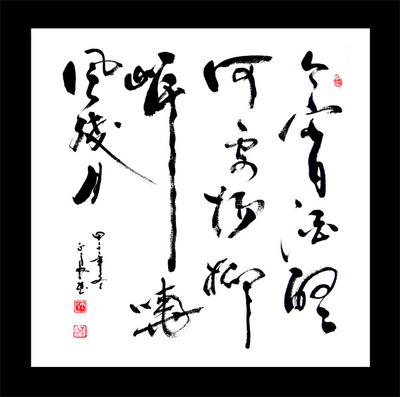 今宵酒醒
何處楊柳
岸曉
風殘月